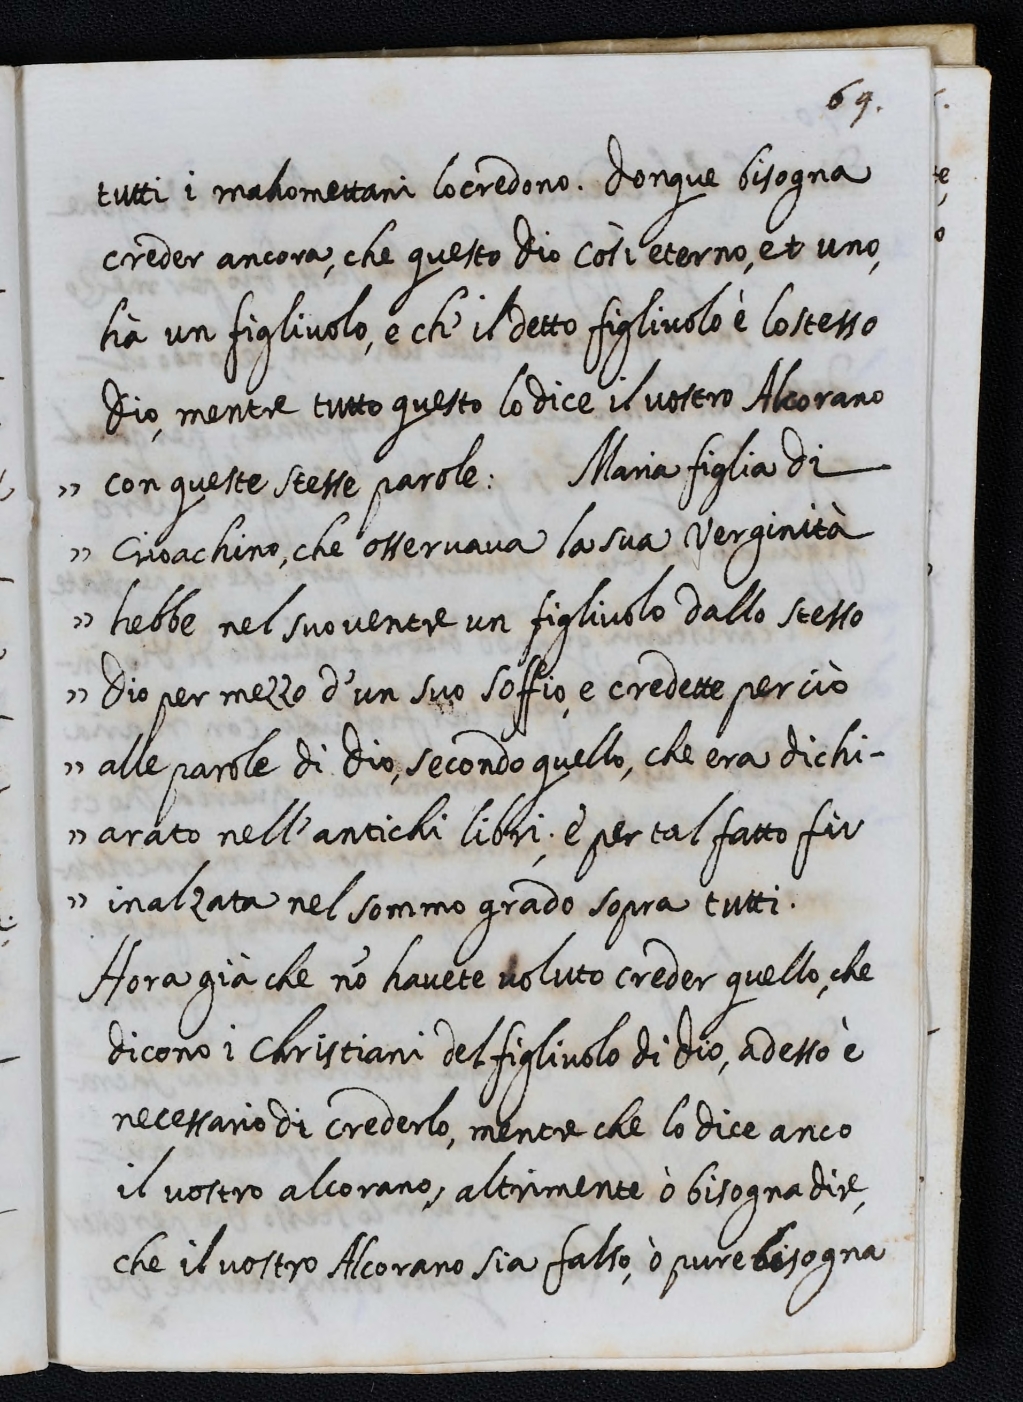 69.
tutti i mahomettani lo credono. Donque bisogna
creder ancora, che questo Dio così eterno, et uno,
hà un figliuolo, e ch' il detto figliuolo è lo stesso
Dio, mentre tutto questo lo dice il vostro Alcorano
» con queste stesse parole: Maria figlia di
» Gioachino, che osseruaua la sua Verginità
» hebbe nel suo ventre un figliuolo dallo stesso
» Dio per mezzo d'un suo soffio, e credette perciò
» alle parole di Dio, secondo quello, che era dichi-
» arato nell'antichi libri; e per tal fatto fù
» inalzata nel sommo grado sopra tutti.
Hora già che nõ hauete voluto creder quello, che
dicono i Christiani del figliuolo di Dio, adesso è
necessario di crederlo, mentre che lo dice anco
il vostro alcorano, altrimente ò bisogna dire,
che il vostro Alcorano sia falso, ò pure bisogna